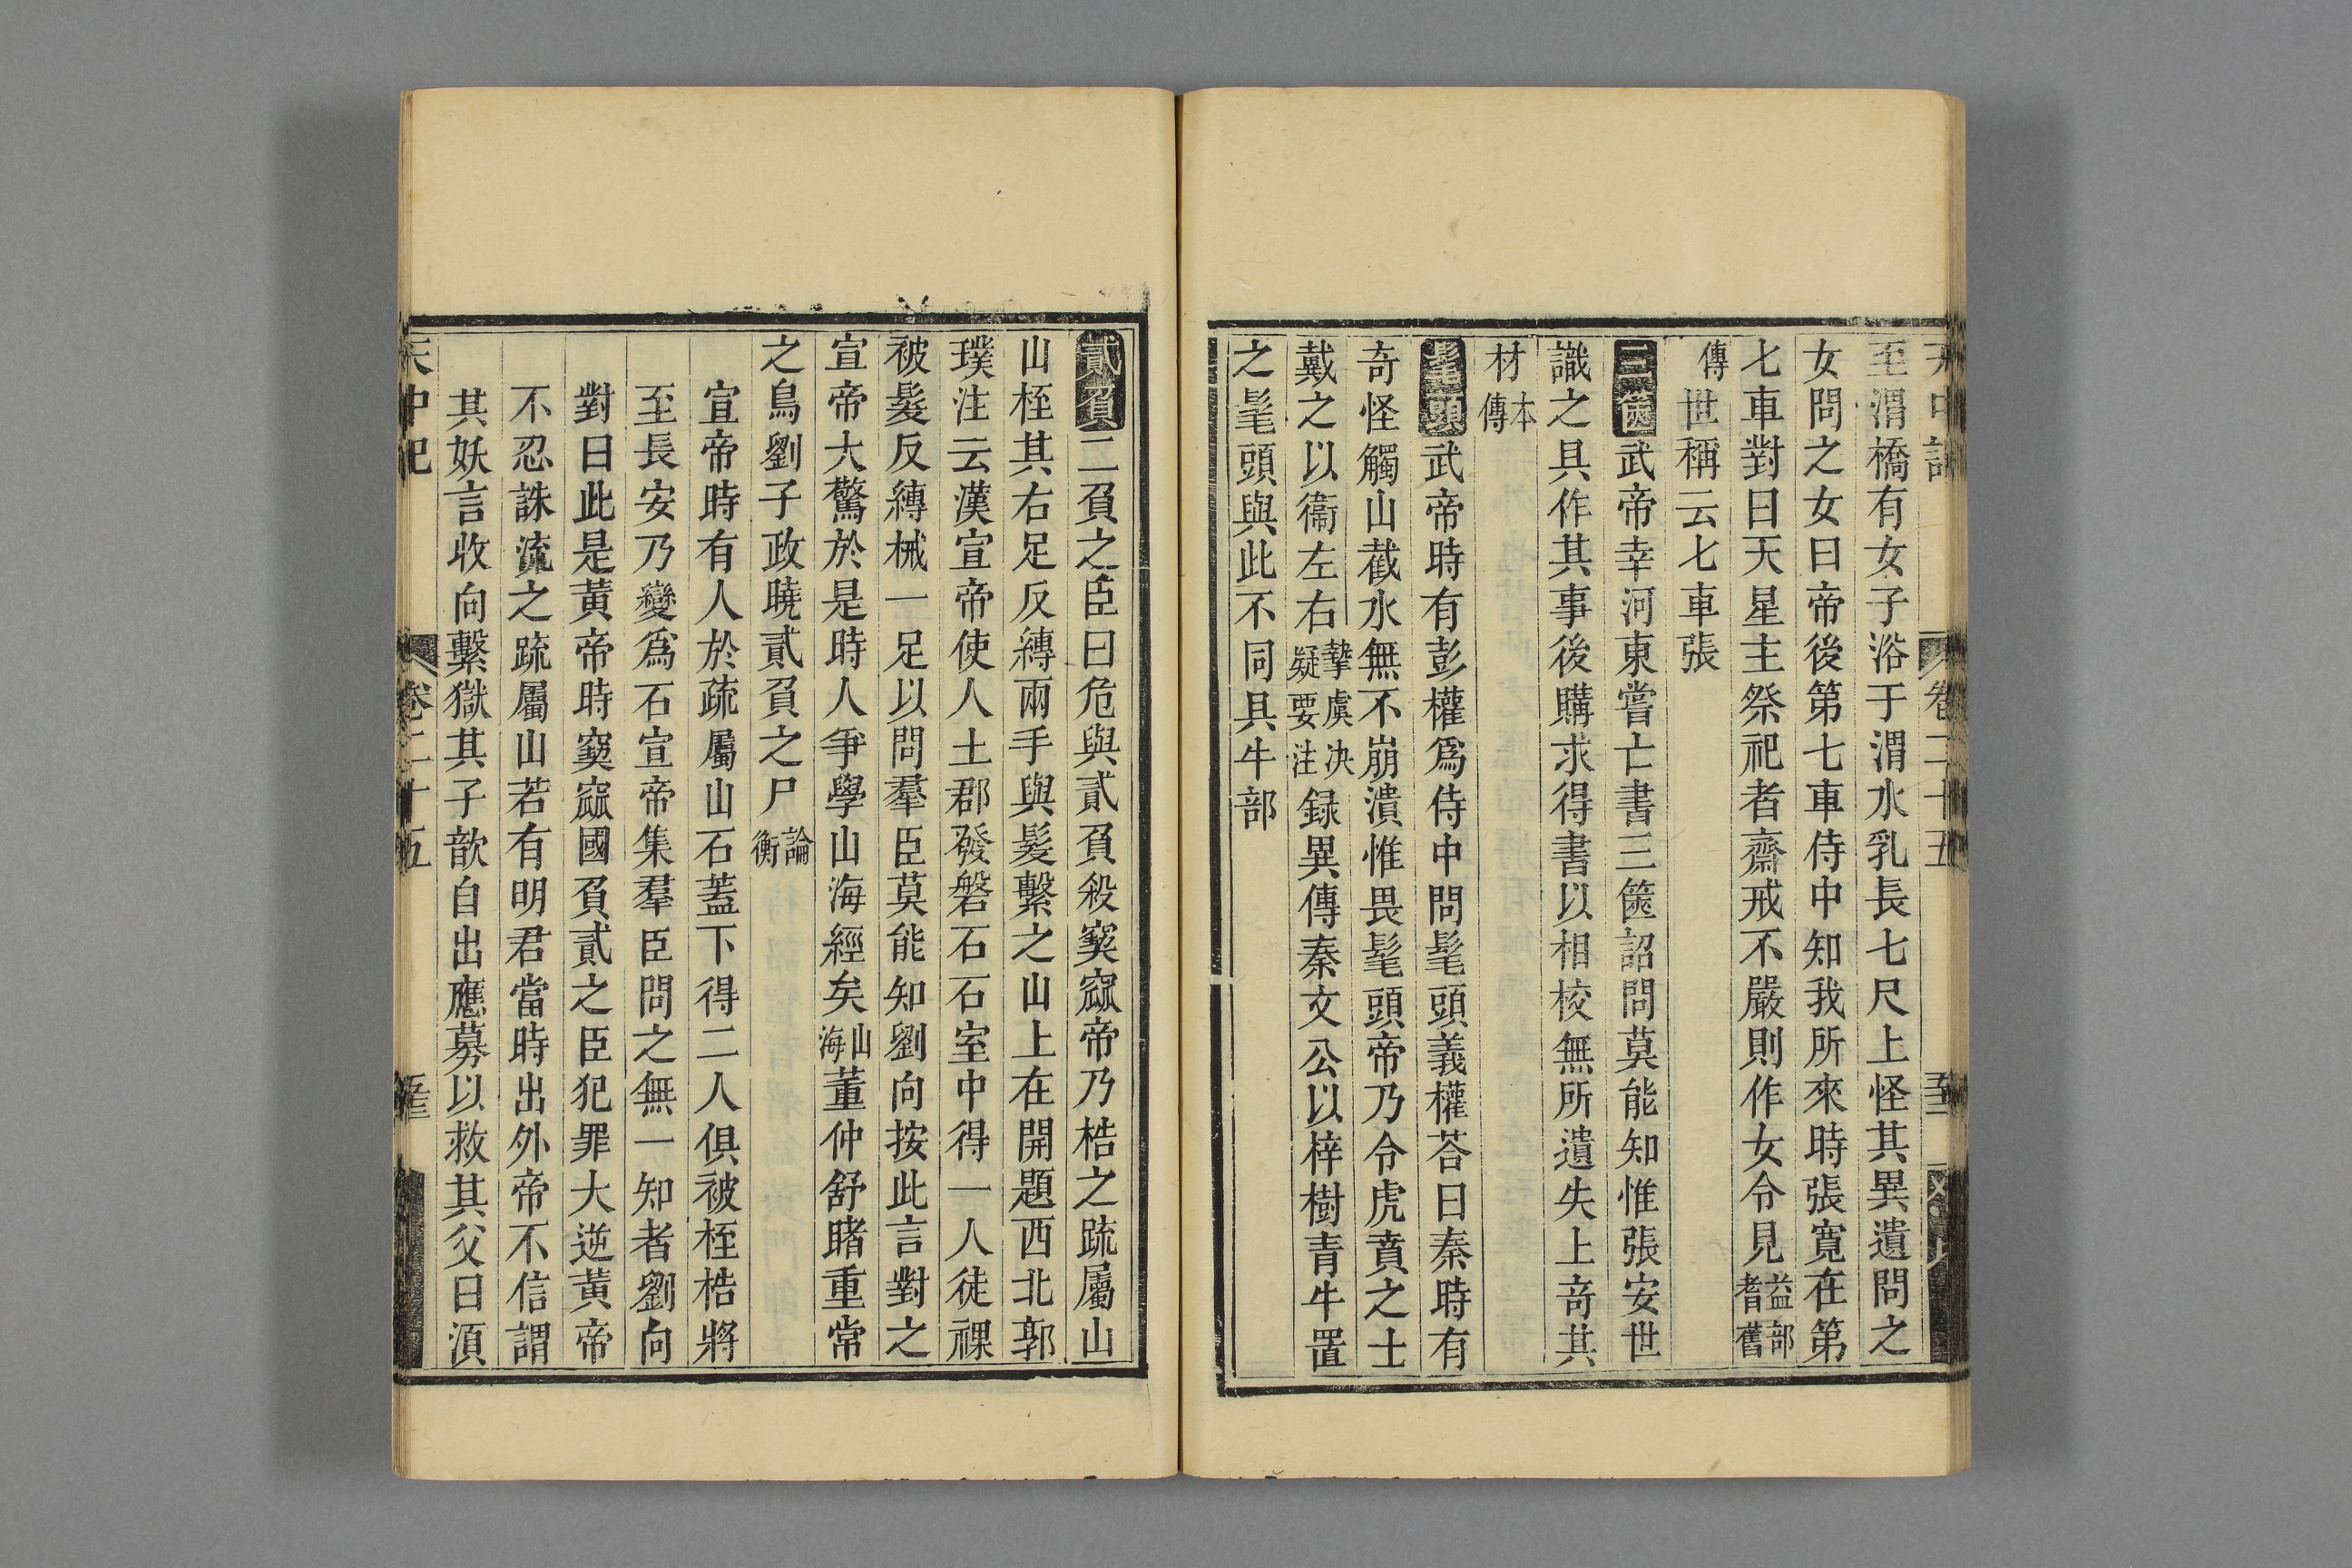 至渭橋有女子浴于渭水乳長七尺上怪其異遺問之
女問之女曰帝後第七車侍中知我所來時張寬在第
七車對曰天星主祭祀者齋戒不嚴則作女令見益部耆舊
傳世稱云七車張
三篋武帝幸河東嘗亡書三篋詔問莫能知惟張安世
識之具作其事後購求得書以相校無所遺失上竒其
材本傳
髦頭武帝時有彭權爲侍中問髦頭義權荅曰秦時有
奇怪觸山截水無不崩潰惟畏髦頭帝乃令虎賁之士
戴之以衞左右摯虞决疑要注録異傳秦文公以梓樹青牛置
之髦頭與此不同具牛部
貳負二負之臣曰危與貳負殺窫窳帝乃梏之疏屬山
山桎其右足反縛兩手與髮繫之山上在開題西北郭
璞注云漢宣帝使人上郡發磐石石室中得一人徒裸
被髮反縛械一足以問羣臣莫能知劉向按此言對之
宣帝大驚於是時人爭學山海經矣山海董仲舒睹重常
之鳥劉子政曉貳負之尸論衡
宣帝時有人於疏屬山石蓋下得二人俱被桎梏將
至長安乃變爲石宣帝集羣臣問之無一知者劉向
對曰此是黃帝時窫窳國負貳之臣犯罪大逆黃帝
不忍誅流之疏屬山若有明君當時出外帝不信謂
其妖言收向繫獄其子歆自出應募以救其父曰湏
天中記 卷二十五